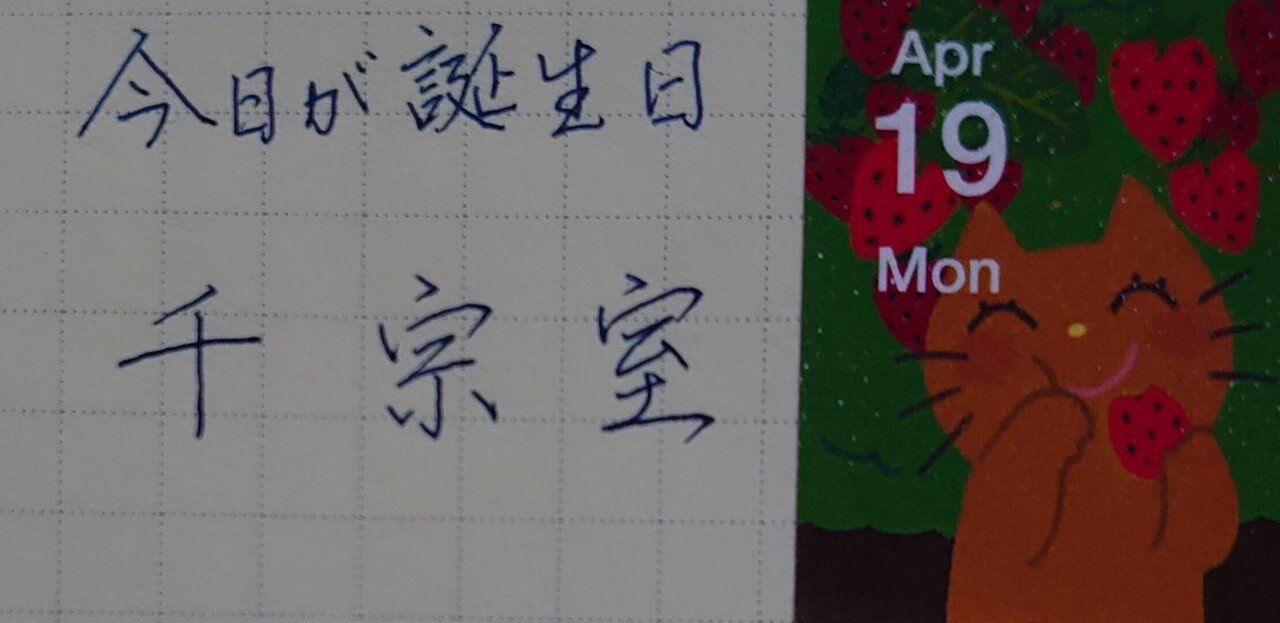 今日が誕生日
千宗室
Apr
19
Mon